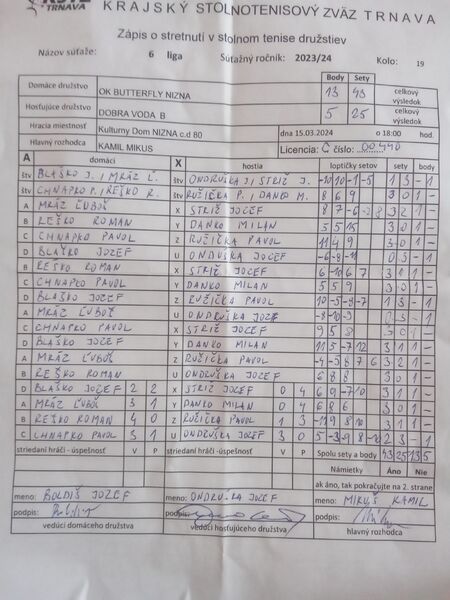 TRNAVA KRAJSKÝ STOLNOTENISOVÝ ZVÄZ TRNAVA
Zápis o stretnutí v stolnom tenise družstiev
Názov súťaže: 6 liga Súťažný ročník: 2023/24 Kolo: 19
Body Sety
Domáce družstvo OK BUTTERFLY NIZNA 13 43 celkový výsledok
Hosťujúce družstvo DOBRA VODA B 5 25 celkový výsledok
Hracia miestnosť Kulturny Dom NIZNA c.d 80 dna 15.03.2024 o 18:00 hod.
Hlavný rozhodca KAMIL MIKUS Licencia: C číslo: 00440
A domáci X hostia loptičky setov sety body
štv BLAŠKO J./MRÁZ Ľ. štv ONDRUŠKA J/STRIČ J. -10 10 -1 -5 1 3 - 1
štv CHNAPKO P./REŠKO R. štv RUŽIČKA P./DANKO M. 8 6 9 3 0 1 -
A MRÁZ ĽUBOŠ X STRIČ JOZEF 8 7 -6 3 2 1 -
B REŠKO ROMAN Y DANKO MILAN 5 5 15 3 0 1 -
C CHNAPKO PAVOL Z RUŽIČKA PAVOL 11 4 9 3 0 1 -
D BLAŠKO JOZEF U ONDRUŠKA JOZEF -6 -8 -11 0 3 - 1
B REŠKO ROMAN X STRIČ JOZEF 6 -10 6 7 3 1 1 -
C CHNAPKO PAVOL Y DANKO MILAN 5 5 9 3 0 1 -
D BLAŠKO JOZEF Z RUŽIČKA PAVOL 10 -5 -8 -7 1 3 - 1
A MRÁZ ĽUBOŠ U ONDRUŠKA JOZEF -8 -10 -9 0 3 - 1
C CHNAPKO PAVOL X STRIČ JOZEF 9 5 8 3 0 1 -
D BLAŠKO JOZEF Y DANKO MILAN 11 5 -7 12 3 1 1 -
A MRÁZ ĽUBOŠ Z RUŽIČKA PAVOL -4 -5 8 7 6 3 2 1 -
B REŠKO ROMAN U ONDRUŠKA JOZEF 6 8 8 3 0 1 -
D BLAŠKO JOZEF 2 2 X STRIČ JOZEF 0 4 6 9 -7 10 3 1 1 -
A MRÁZ ĽUBOŠ 3 1 Y DANKO MILAN 0 4 6 8 6 3 0 1 -
B REŠKO ROMAN 4 0 Z RUŽIČKA PAVOL 1 3 -11 9 8 10 3 1 1 -
C CHNAPKO PAVOL 3 1 U ONDRUŠKA JOZEF 3 0 5 -3 9 8 -10 2 3 - 1
striedaní hráči - úspešnosť V P striedaní hráči - úspešnosť V P Spolu sety a body 43 25 13 5
Námietky Áno Nie
ak áno, tak pokračujte na 2. strane
meno: BOLDIŠ JOZEF meno: ONDRUŠKA JOZEF meno: MIKUŠ KAMIL
podpis: podpis: podpis:
vedúci domáceho družstva vedúci hosťujúceho družstva hlavný rozhodca